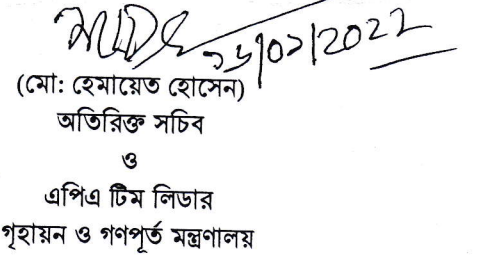 ২৬/০১/2022
(মো: হেমায়েত হোসেন)
অতিরিক্ত সচিব
ও
এপিএ টিম লিডার
গৃহায়ন ও গণপূর্ত মন্ত্রণালয়